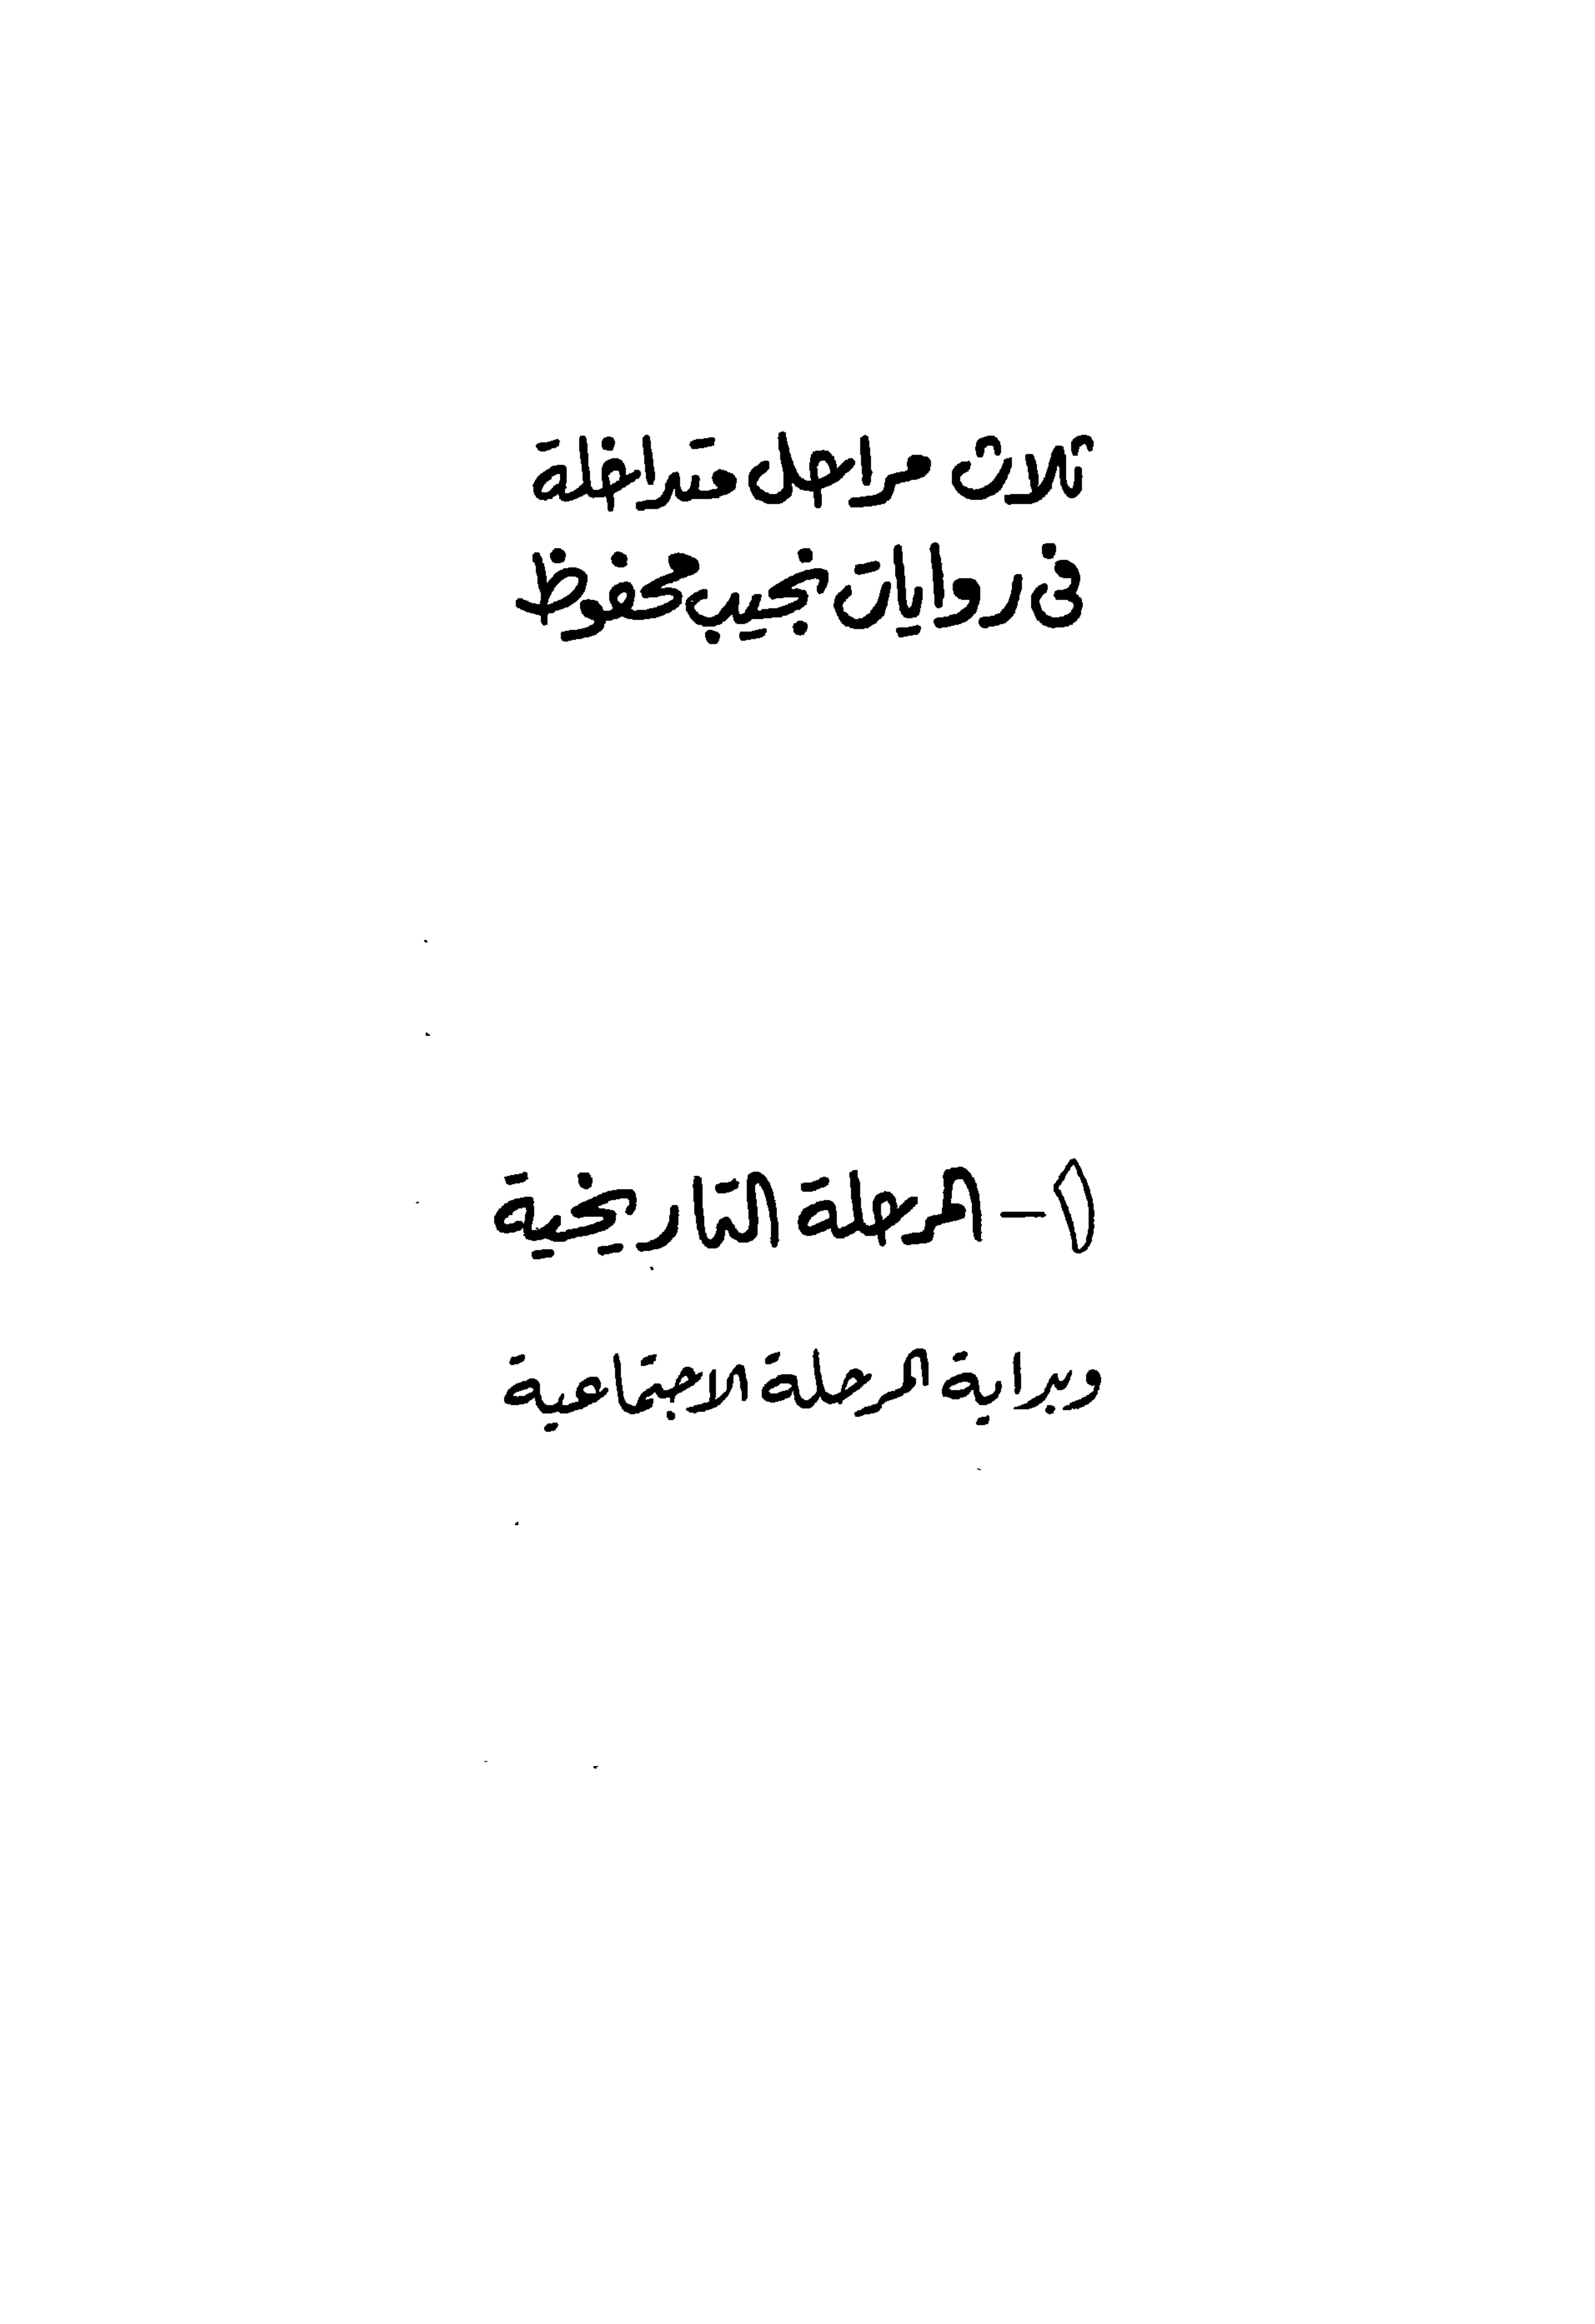 ثلاث مراحل متداخلة
فى روايات نجيب محفوظ
١ - المرحلة التاريخية
وبداية المرحلة الاجتماعية